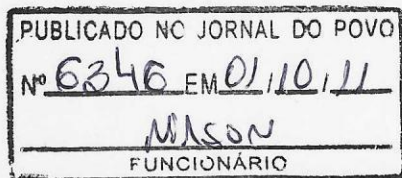 PUBLICADO NO JORNAL DO POVO
Nº 6346 EM 01/10/11
NILSON
FUNCIONÁRIO